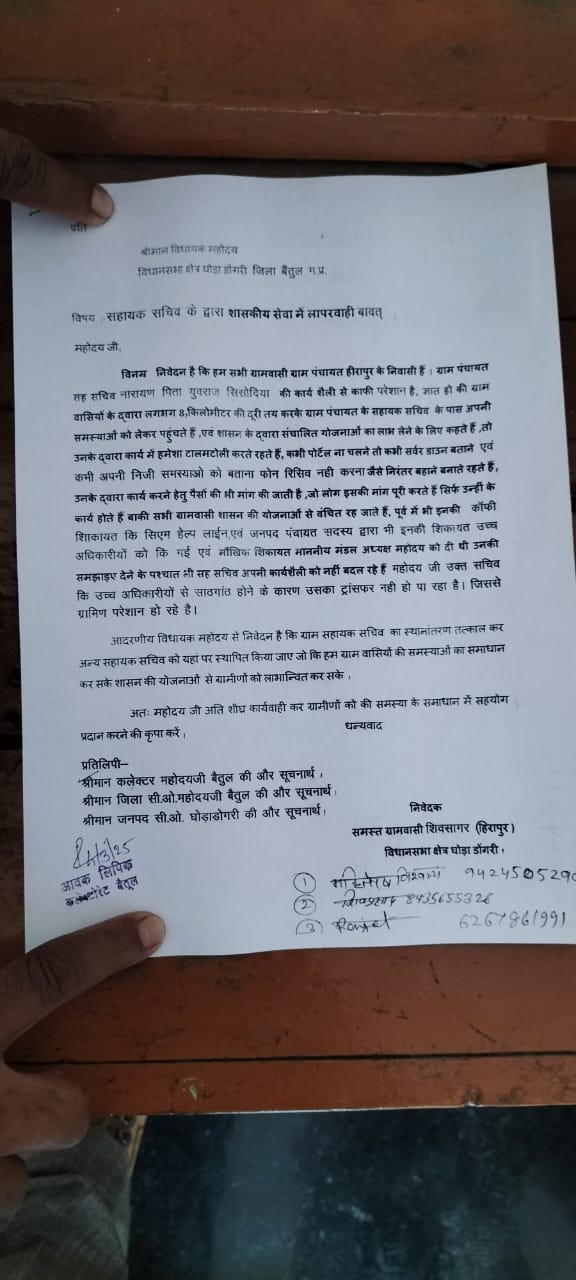 प्रति
श्रीमान विधायक महोदय
विधानसभा क्षेत्र घोड़ा डोंगरी जिला बैतुल म.प्र.
विषय :- सहायक सचिव के द्वारा शासकीय सेवा में लापरवाही बावत्
महोदय जी,
विनम्र निवेदन है कि हम सभी ग्रामवासी ग्राम पंचायत हीरापुर के निवासी हैं । ग्राम पंचायत
सह सचिव नारायण पिता युवराज सिसोदिया की कार्य शैली से काफी परेशान है, ज्ञात हो की ग्राम
वासियों के द्वारा लगभग 8,किलोमीटर की दूरी तय करके ग्राम पंचायत के सहायक सचिव के पास अपनी
समस्याओं को लेकर पहुंचते हैं ,एवं शासन के द्वारा संचालित योजनाओं का लाभ लेने के लिए कहते हैं ,तो
उनके द्वारा कार्य में हमेशा टालमटोली करते रहते हैं, कभी पोर्टेल ना चलने तो कभी सर्वर डाउन बताने एवं
कभी अपनी निजी समस्याओ को बताना फोन रिसिव नही करना जैसे निरंतर बहाने बनाते रहते हैं,
उनके द्वारा कार्य करने हेतु पैसों की भी मांग की जाती है ,जो लोग इसकी मांग पूरी करते हैं सिर्फ उन्हीं के
कार्य होते हैं बाकी सभी ग्रामवासी शासन की योजनाओं से वंचित रह जाते हैं, पूर्व में भी इनकी कॉफी
शिाकायत कि सिएम हेल्प लाईन,एवं जनपद पंचायत सदस्य द्वारा भी इनकी शिकायत उच्च
अधिकारीयों को कि गई एवं मौखिक शिकायत माननीय मंडल अध्यक्ष महोदय को दी थी उनकी
समझाइए देने के पश्चात भी सह सचिव अपनी कार्यशैली को नहीं बदल रहे हैं महोदय जी उक्त सचिव
कि उच्च अधिकारीयों से साठगांठ होने के कारण उसका ट्रांसफर नही हो पा रहा है। जिससे
ग्रामिण परेशान हो रहे है।
आदरणीय विधायक महोदय से निवेदन है कि ग्राम सहायक सचिव का स्थानांतरण तत्काल कर
अन्य सहायक सचिव को यहां पर स्थापित किया जाए जो कि हम ग्राम वासियों की समस्याओं का समाधान
कर सके शासन की योजनाओं से ग्रामीणों को लाभान्वित कर सके ।
अतः महोदय जी अति शीघ्र कार्यवाही कर ग्रामीणों को की समस्या के समाधान में सहयोग
प्रदान करने की कृपा करें ।
धन्यवाद
प्रतिलिपी–
श्रीमान कलेक्टर महोदयजी बैतुल की और सूचनार्थ ।
श्रीमान जिला सी.ओ.महोदयजी बैतुल की और सूचनार्थ ।
श्रीमान जनपद सी.ओ. घोड़ाडोगरी की और सूचनार्थ।
निवेदक
समस्त ग्रामवासी शिवसागर (हिरापुर)
विधानसभा क्षेत्र घोडा डोंगरी ।
/3/25
आवक लिपिक
कलेक्टोरेट बैतूल
① विश्वास 9424505290
② शिवप्रसाद 8435655326
③ Ranjet 6267861991